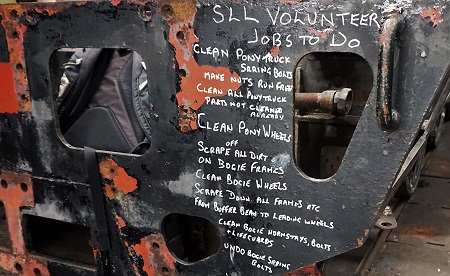 SLL VOLUNTEER
JOBS TO DO
CLEAN PONYTRUCK
SPRING BOLTS
MAKE NUTS RUN FREE
CLEAN ALL PONYTRUCK
PARTS NOT CLEANED
ALREADY
CLEAN PONY WHEELS
OFF
SCRAPE ALL DIRT
ON BOGIE FRAMES
CLEAN BOGIE WHEELS
SCRAPE DOWN ALL FRAMES ETC
FROM BUFFER BEAM TO LEADING WHEELS
CLEAN BOGIE HORNSTAYS, BOLTS
+ LIFEGUARDS
UNDO BOGIE SPRING
BOLTS